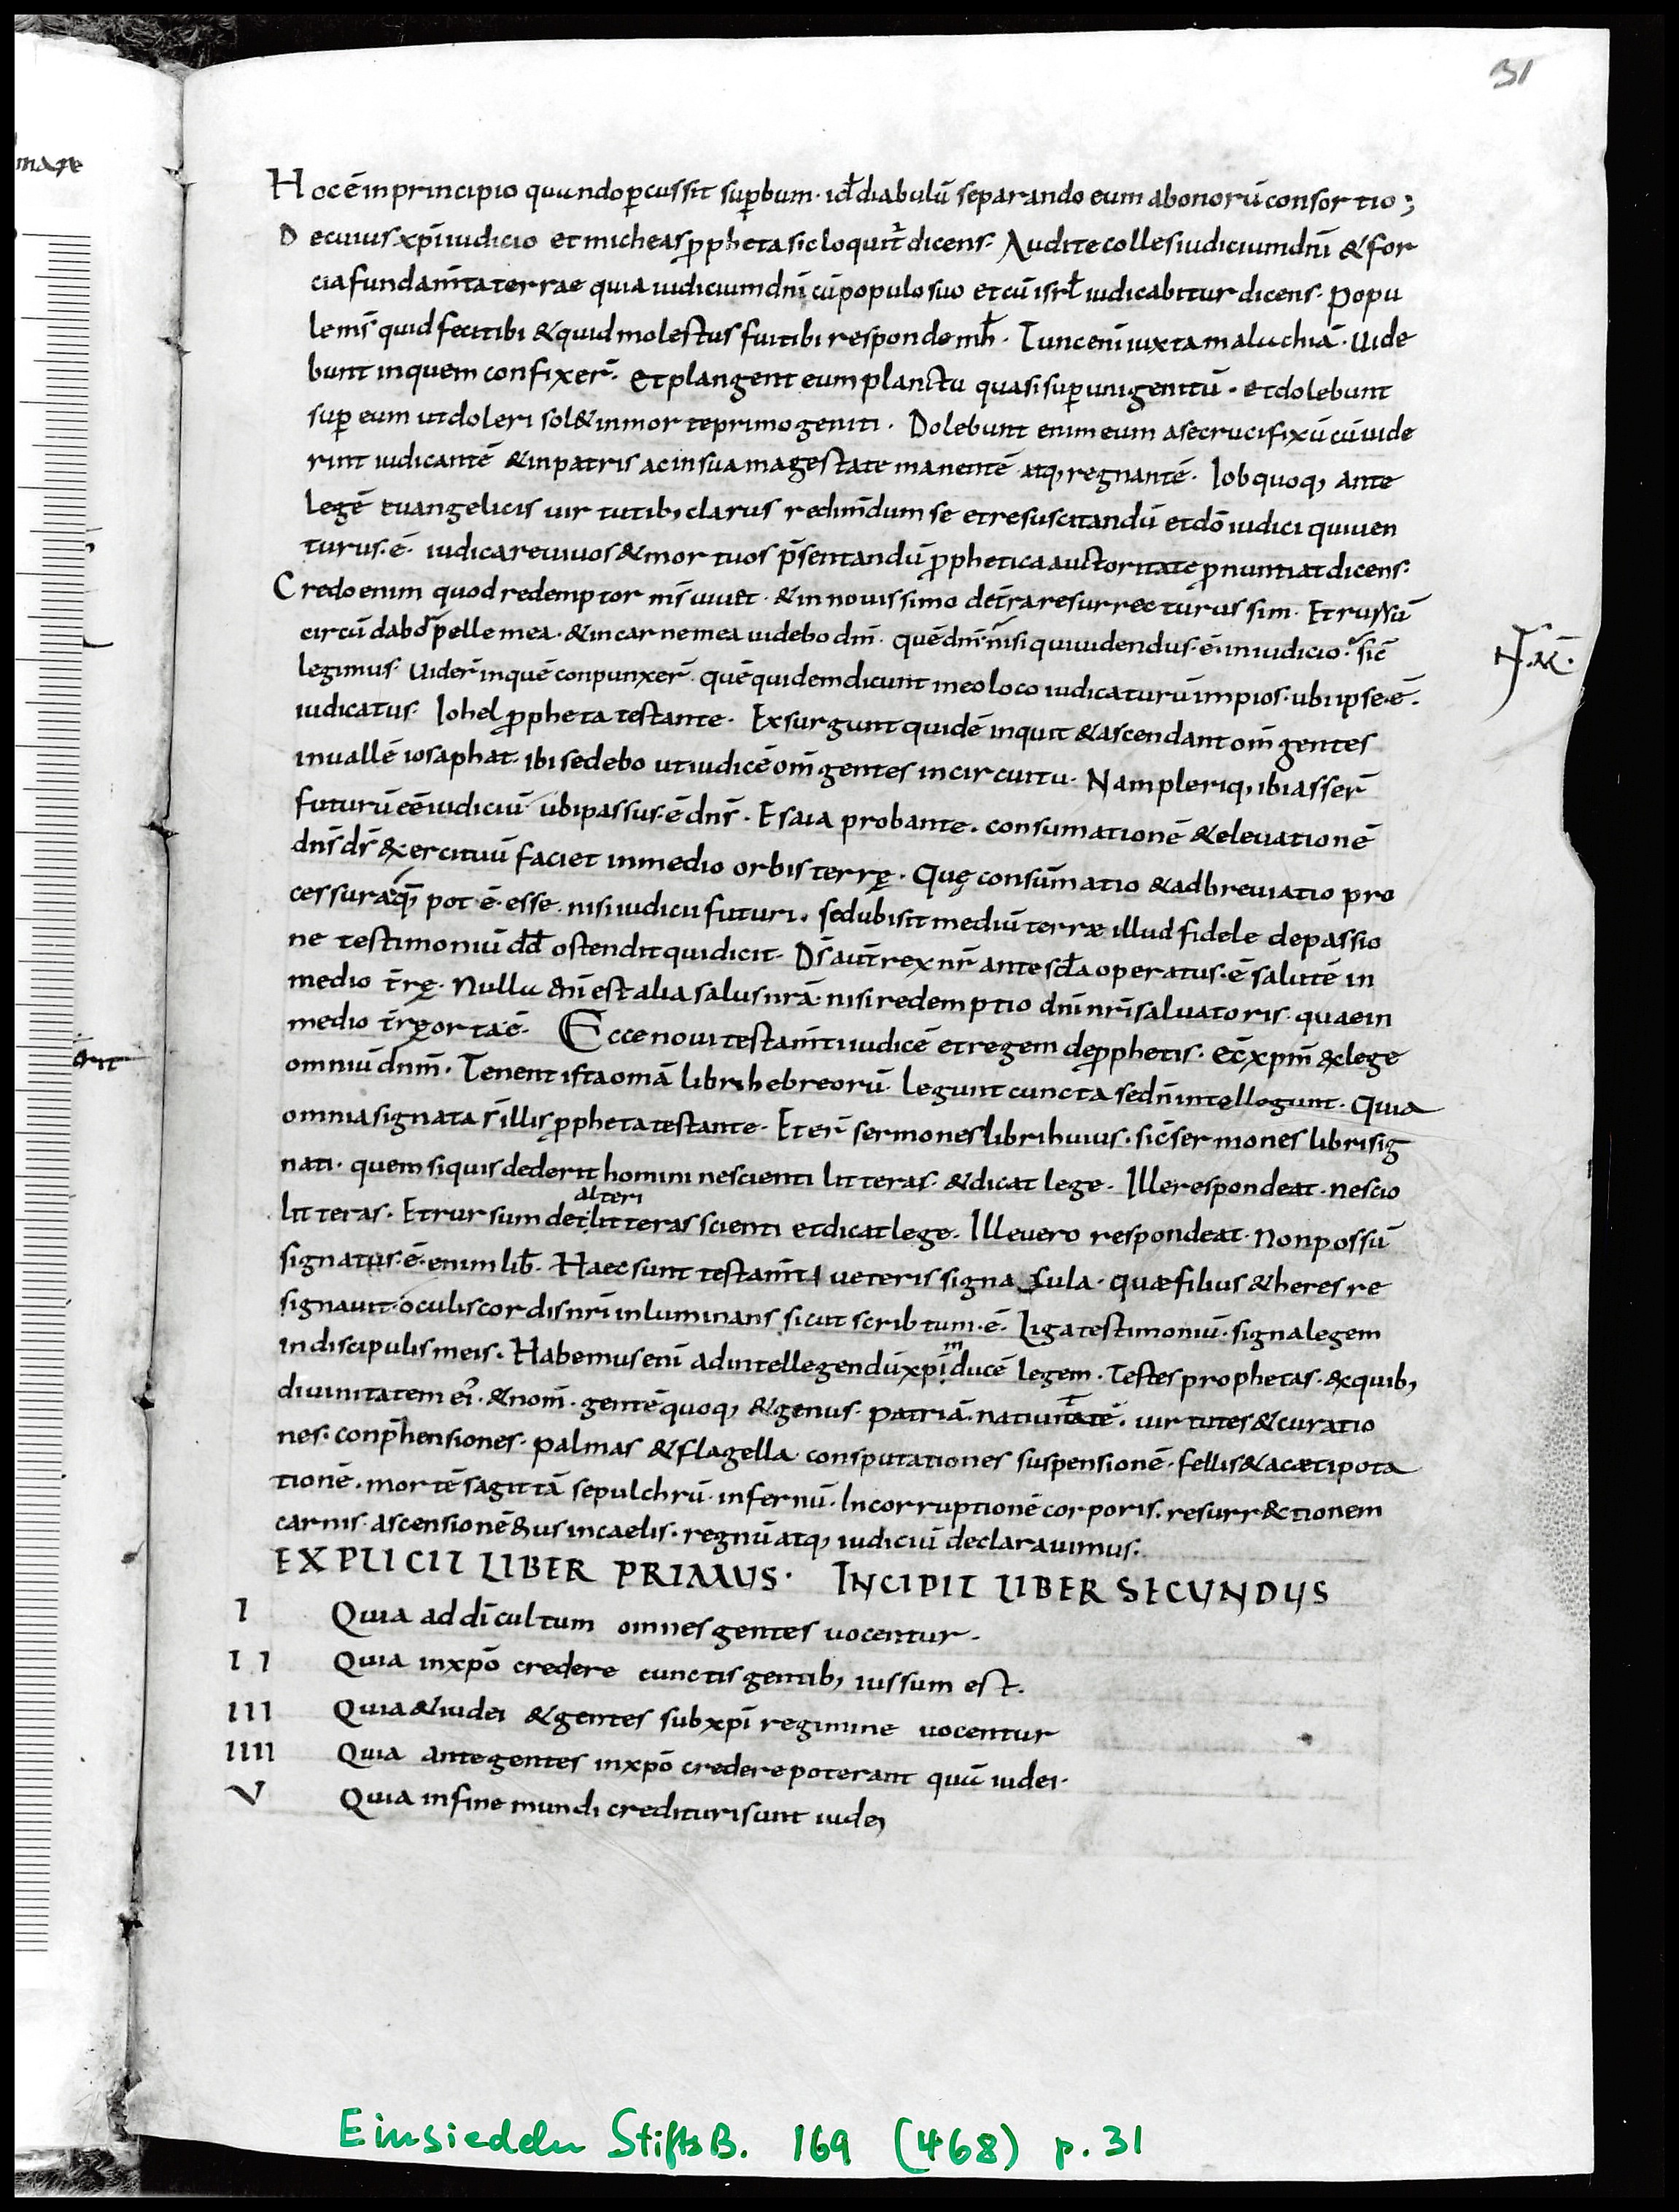 31
Hoc ē in principio quando p̄cussit sup̄bum · id ̄ diabulū separando eum a bonorū consortio ;
De cuius xp̄i iudicio et micheas p̄pheta sic loquit̄ dicens · Audite colles iudicium dn̄i & for
cia fundam̄ta terrae quia iudicium dn̄i cū populo suo et cū isrl̄ iudicabitur dicens · Popu
le m̄s quid feci tibi & quid molestus fui tibi responde mh̄ · Tunc eni iuxta malachiā · Uide
bunt in quem confixer̄ · Et plangent eum planctu quasi sup̄ unigenitū · et dolebunt
sup̄ eum ut doleri sol& in morte primogeniti · Dolebunt enim eum a se crucifixū cū uide
rint iudicantē & in patris ac in sua magestate manentē atq, regnantē · Iob quoq, ante
legē euangelicis uirtutib, clarus redim̄dum se et resuscitandū et dō iudici qui uen
turus · ē · iudicare uiuos & mortuos p̄sentandū p̄phetica auctoritate p̄nuntiat dicens ·
Credo enim quod redemptor m̄s uiuet · & in nouissimo de t̄ra resurrecturus sim · Et russū
circūdabor pelle mea · & in carne mea uidebo dn̄i · quē dn̄i nisi qui uidendus · ē · in iudicio · sic̄
legimus · Uider̄ in quē conpunxer̄ · quē quidem dicunt in eo loco iudicaturū impios · ubi ipse · ē ·
iudicatus · Iohel p̄pheta testante · Exsurgunt quidē inquit & ascendant om̄ gentes
in uallē iosaphat · ibi sedebo ut iudicē om̄ gentes in circuitu · Nam pleriq, ibi asser̄
futurū eē iudiciū ubi passus · ē dn̄s · Esaia probante · consumationē & eleuationē
dn̄s ds̄ &xercituū faciet in medio orbis terrę · Quę consūmatio & adbreuiatio pro
cessuraq, pot · ē · esse · nisi iudicii futuri · sed ubi sit mediū terræ illud fidele de passio
ne testimoniū dd̄ ostendit qui dicit · Ds̄ aut̄ rex nr̄ ante scl̄a operatus · ē salutē in
medio t̄rę · Nulla eni est alia salus nrā · nisi redemptio dn̄i nr̄i saluatoris · quae in
medio t̄rę orta ē · Ecce noui testam̄ti iudicē et regem de p̄phetis · ec̄ xpm̄ & lege
omniū dnm̄ · Tenent ista omā libri hebreorū · legunt cuncta sed n̄ intellegunt · Quia
omnia signata s̄ illis p̄pheta testante · Et er̄ sermones libri huius · sic̄ sermones libri sig
nati · quem si quis dederit homini nescienti litteras · & dicat lege · Ille respondeat · nescio
alteri
litteras · Et rursum det litteras scienti et dicat lege · Ille uero respondeat · Non possū
signatus · ē · enim lib̄ · Haec sunt testam̄ti ueteris signacula · quæ filius & heres re
signauit · oculis cordis nr̄i inluminans sicut scribtum · ē · Liga testimoniū · signa legem
m
in discipulis meis · Habemus eni ad intellegendū xpi ducē legem · Testes prophetas · &x quib,
diuinitatem ei' · & nom̄ · gentē quoq, & genus · patriā · natiuitatē · uirtutes & curatio
nes · conp̄hensiones · palmas & flagella · consputationes suspensionē · fellis & acæti pota
tionē · mortē sagittā sepulchrū · infernū · Incorruptionē corporis · resurr&ctionem
carnis · ascensionē eius in caelis · regnū atq, iudiciū declarauimus ·
EXPLICIT LIBER PRIMUS · INCIPIT LIBER SECUNDUS
I Quia ad dī cultum omnes gentes uocentur ·
II Quia in xpō credere cunctis gentib, iussum est ·
III Quia & iudei & gentes sub xpī regimine uocentur
IIII Quia ante gentes in xpō credere poterant quā iudei ·
V Quia in fine mundi credituri sunt iudei
Einsiedeln StiftsB. 169 (468) p. 31